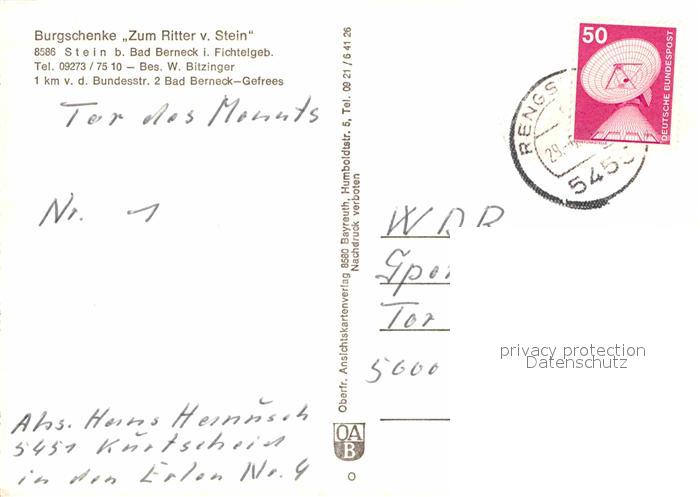 Burgschenke „Zum Ritter v. Stein“
8586 Stein b. Bad Berneck i. Fichtelgeb.
Tel. 09273 / 75 10 — Bes. W. Bitzinger
1 km v. d. Bundesstr. 2 Bad Berneck—Gefrees
Tor des Monats
Nr. 1
Abs. Hans
5451 Kurtscheid
in den Erlen Nr. 4
Oberfr. Ansichtskartenverlag 8580 Bayreuth, Humboldtstr. 5, Tel. 09 21 / 6 41 26
Nachdruck verboten
OA
B
50
DEUTSCHE BUNDESPOST
RENGS
545
WDR
Spor
Tor
5000
privacy protection
Datenschutz